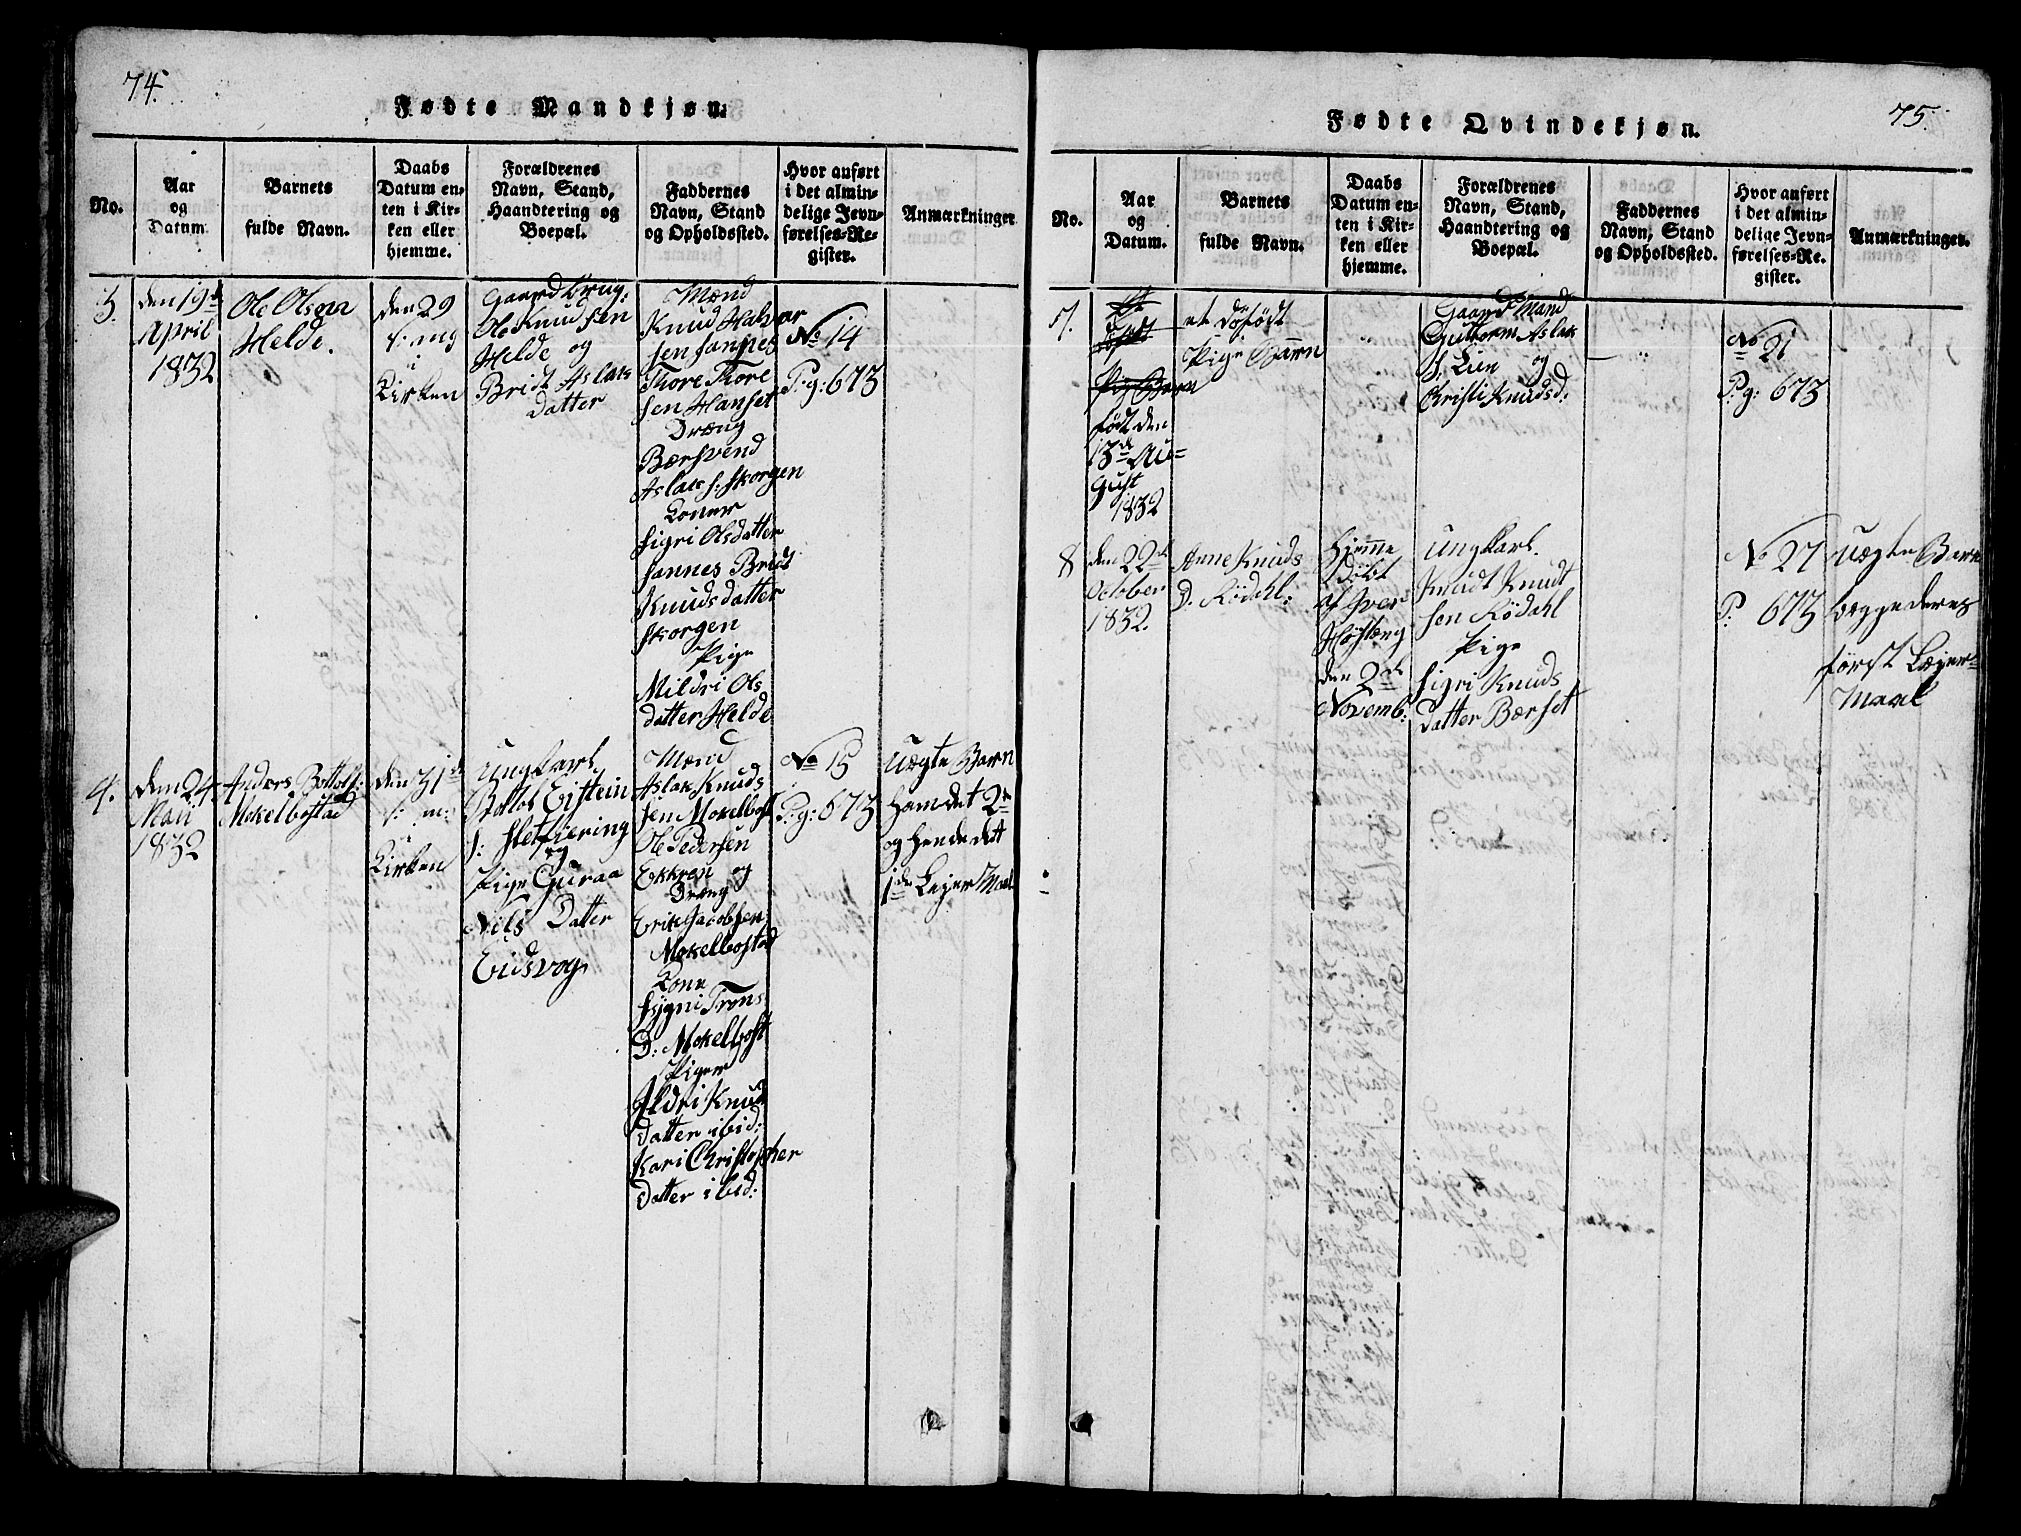 74.
Fødte Mandkjøn.
No.
Aar
og
Datum.
Barnets
fulde Navn.
Daabs
Datum en-
ten i Kir-
ken eller
hjemme.
Forældrenes
Navn, Stand,
Haandtering og
Boepæl.
Faddernes
Navn, Stand
og Opholdssted.
Hvor anført
i det almin-
delige Jevn-
førelses-Re-
gister.
Anmærkninger.
3.
den 19de
April
1832
Ole Olsen
Helde.
den 29
i
Kirken
Gaard brug:
Ole Knudsen
Helde og
Bridt Aslaks
datter
Mænd
Knud Halvor
sen Sannes
Thore Thore
sen Hanset
Dræng
Bærsvend
Aslaks: Skorgen
Koner
Sigri Olsdatter
Sannes Bridt
Knudsdatter
Skorgen
Pige
Mildri Ols
datter Helde
No 14
P:g: 673
4.
den 24.
Maii
1832
Anders Bottolfs:
Mokelbostad
den 31te
i
Kirken
Ungkarl
Bottol Eistein
s: Sletfiering
og
Pige Guraa
Nils Datter
Eidsvog
Mænd
Aslak Knuds
sen Mokelbost
Ole Pedersen
Ekkren og
Dræng
Erik Jacobsen
Mokelbostad
Kone
Sygni Trons
D: Mokelbost
Piger
Ildri Knud
datter ibid:
Kari Christopher
Datter ibid:
No 15
P:g: 673
Uægte Barn
ham det 2de
og hende dett
1de Lejer Maal
75.
Fødte Qvindekjøn.
No.
Aar
og
Datum.
Barnets
fulde Navn.
Daabs
Datum en-
ten i Kir-
ken eller
hjemme.
Forældrenes
Navn, Stand,
Haandtering og
Boepæl.
Faddernes
Navn, Stand
og Opholdssted.
Hvor anført
i det almin-
delige Jevn-
førelses-Re-
gister.
Anmærkninger.
7.
Pige Barn
født den
13de Au=
gust
1832
et døfødt
Pige Barn
Gaard Mand
Guttorm Aslak
s. Lien og
Christi Knudsd:
No 21
P:g: 673
8
den 22de
October
1832.
Anne Knuds
D. Rödahl:
Hjemme
døbt
af Iver
Høstæng
den 2de
Novemb:
Ungkarl.
Knudt Knudt
sen Rödahl
Pige
Sigri Knuds
datter Bærset
No 27
P: 673
Uægte Barn
begge deres
første Lejer=
Maal